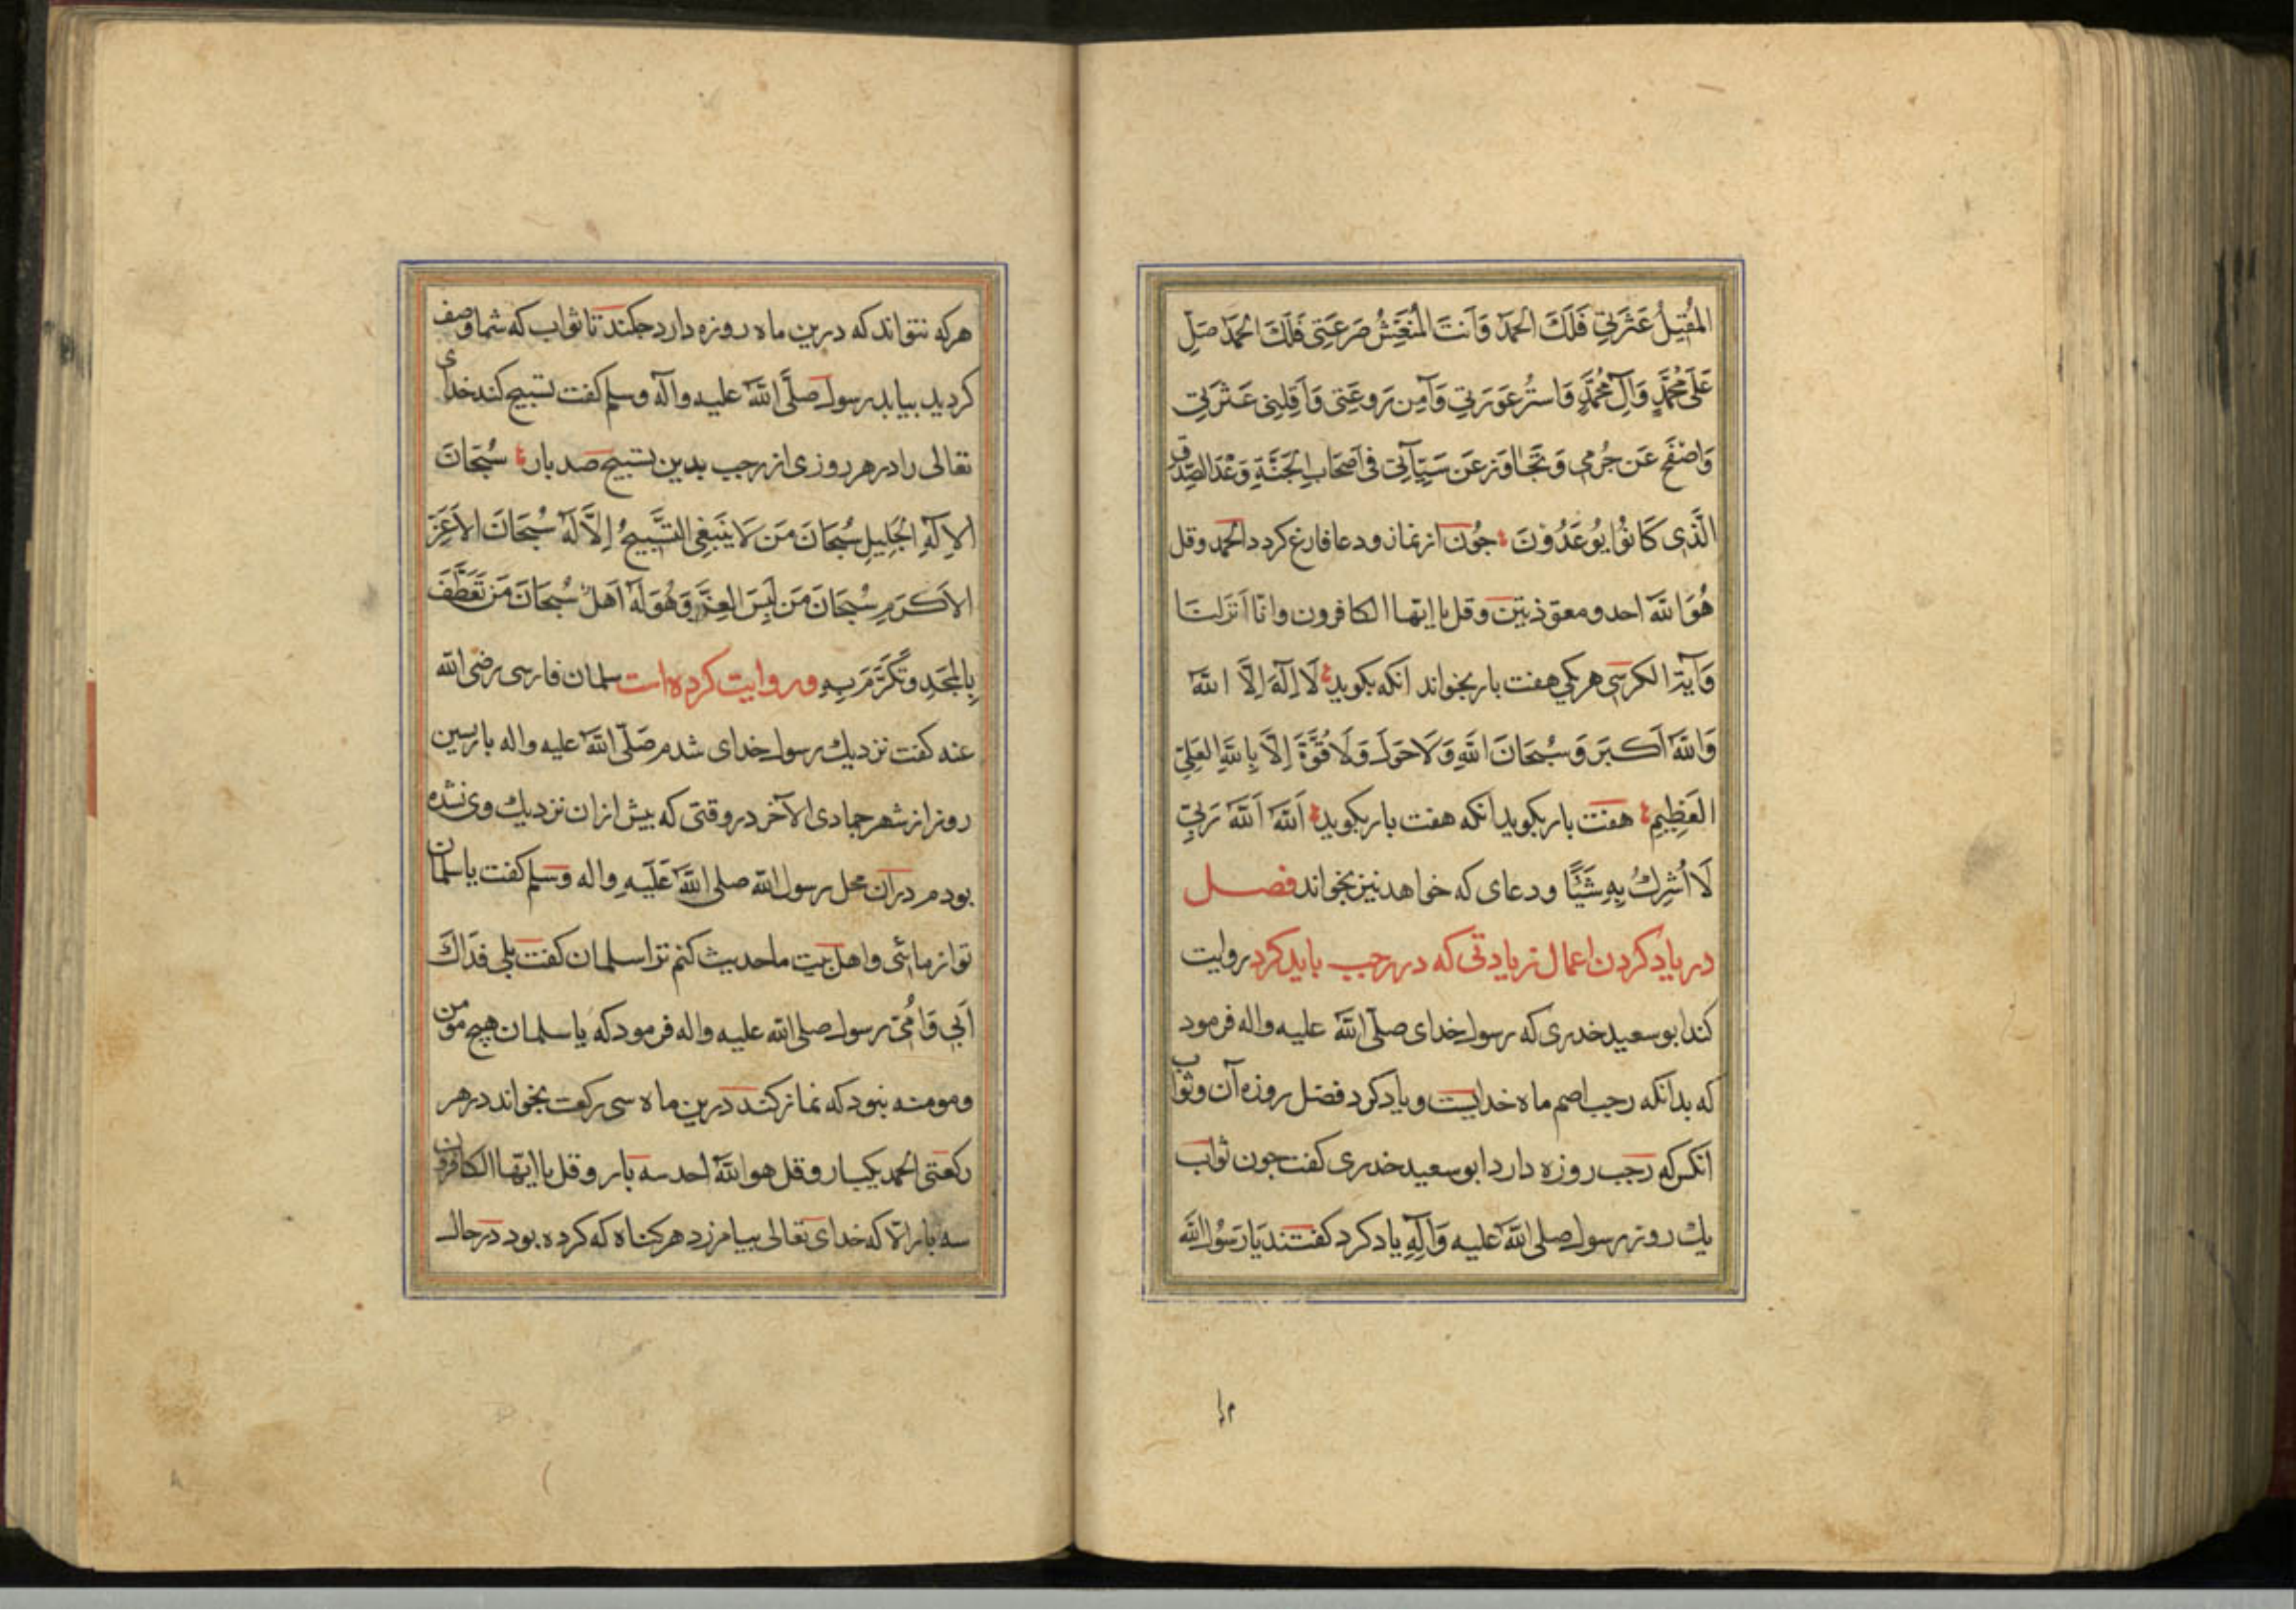 المُقِيلُ عَثْرَتِي فَلَكَ الحَمْدُ وَاَنتَ المُنَعِّشُ صَرعَتِي فَلَكَ الحَمْدُ صَلِّ
عَلَى مُحَمَّدٍ وَآلِ مُحَمَّدٍ وَاستُر عَورَتِي وَآمِن رَوعَتِي وَاَقِلنِي عَثرَتِي
وَاصْفَح عَن جُرمِي وَتَجَاوَز عَن سَيِّآتِي فِي اَصحَابِ الجَنَّةِ وَعْدَ الصِّدقِ
الَّذِى كَانُوْا يُوعَدُوْنَ جُون از نماز ودعا فارغ كردد الحمد وقل
هُوَ اللّٰه احد ومعوّذتين وقل يا ايها الكافرون وانّا اَنزَلنَا
وَآيَة الكرسي هريكي هفت بار بخواند انكه بكويد لَا اِلٰهَ اِلَّا اللّٰه
وَاللّٰه اَكبَر وَسُبحَانَ اللّٰهِ وَلَا حَولَ وَلَا قُوَّةَ اِلَّا بِاللّٰهِ العَلِيِّ
العَظِيمِ هفت بار بكويد انكه هفت بار بكويد اَللّٰه اَللّٰه رَبِّي
لَا اُشرِكُ بِهِ شَيْئًا ودعاى كه خواهد نيز بخواند فصل
در ياد كردن اعمال زيادتى كه در رجب بايد كرد روايت
كند ابو سعيد خدرى كه رسول خداى صلّى اللّٰه عليه واله فرمود
كه بدانكه رجب اصم ماه خدايست وياد كرد فضل روزه آن وثواب
انكس كه رجب روزه دارد ابو سعيد خدرى كفت جون ثواب
يك روز رسول صلى اللّٰه عليه وَآلِهِ ياد كرد كفتند يَا رَسُول اللّٰه
هركه نتواند كه درين ماه روزه دارد جكند تا ثواب كه شما وصف
كرديد بيابد رسول صلَّى اللّٰه عليه وآله وسلم كفت تسبيح كند خداى
تعالى را در هر روزى از رجب بدين تسبيح صد بار سُبْحَانَ
الاِلٰهِ الجَلِيلِ سُبحَانَ مَن لَا يَنبَغِى التَّسبِيحُ اِلَّا لَهُ سُبحَانَ الاَعَزِّ
الاَكرَمِ سُبحَانَ مَن لَبِسَ العِزَّ وَهُوَ لَهُ اَهلٌ سُبحَانَ مَن تَعَطَّفَ
بِالمَجدِ وَتَكَرَّمَ بِهِ وروايت كرده است سلمان فارسى رضى اللّٰه
عنه كفت نزديك رسول خداى شدم صَلّى اللّٰه عليه واله بازپسين
روز از شهر جمادى الآخر در وقتى كه بيش ازان نزديك وى نشده
بودم دران محل رسول اللّٰه صلى اللّٰه عَلَيهِ واله وسلم كفت يا سلمان
تو از مائى واهل بيت ما حديث كنم ترا سلمان كفت بلى فداك
اَبِي وَاُمِّي رسول صلى اللّٰه عليه واله فرمود كه يا سلمان هيچ مومن
ومومنه نبود كه نماز كند درين ماه سى ركعت بخواند در هر
ركعتى الحمد يكبار وقل هو اللّٰه احد سه بار وقل يا ايها الكافرون
سه بار الّا كه خداى تعالى بيامرزد هر كناه كه كرده بود در حال